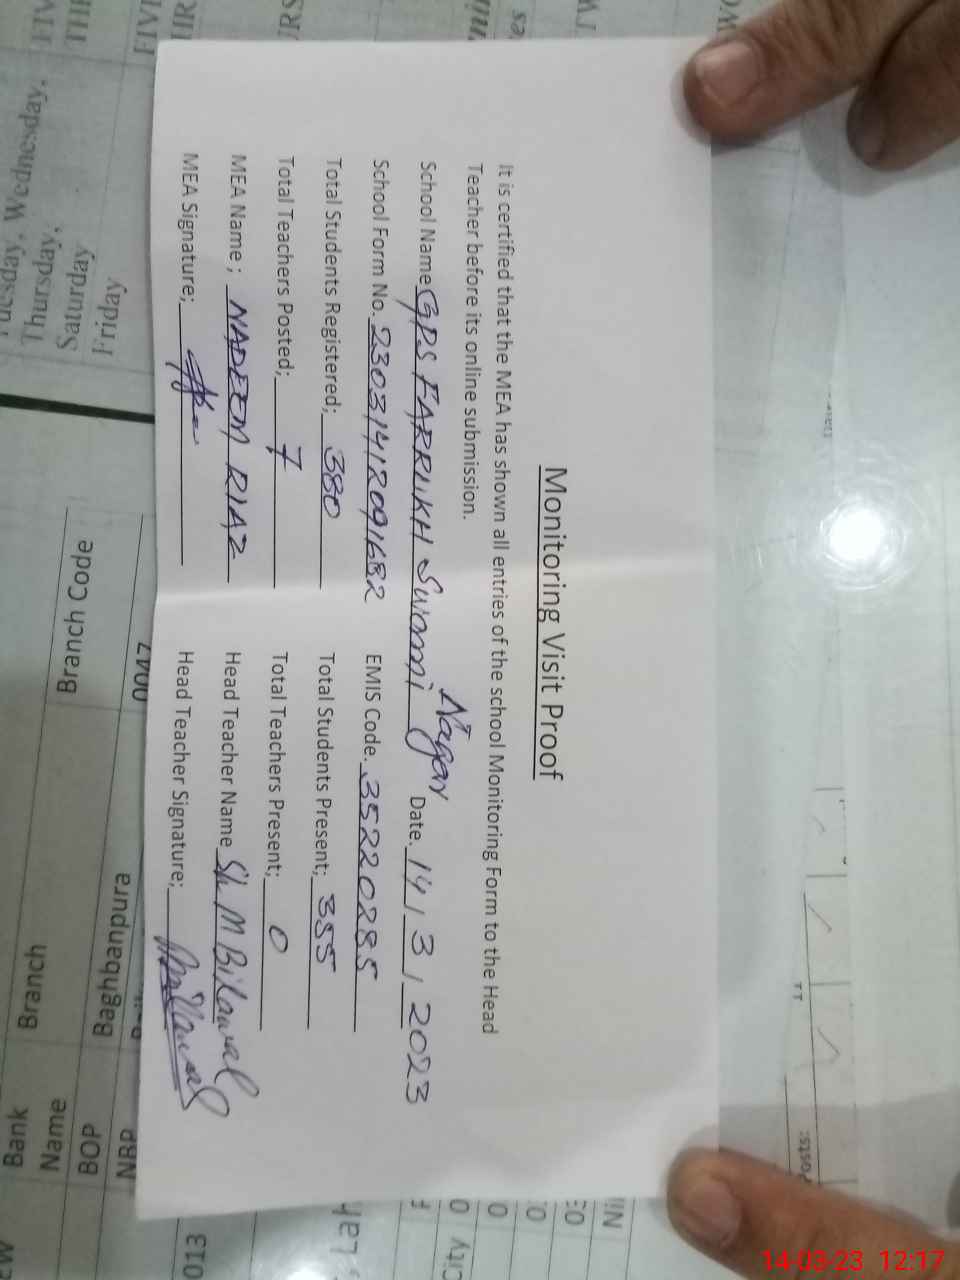 Monitoring Visit Proof
It is certified that the MEA has shown all entries of the school Monitoring Form to the Head
Teacher before its online submission.
School Name GPS FARRUKH Sunmi Nagar Date. 14 / 3 / 2023
School Form No. 23031412091682 EMIS Code. 35220285
Total Students Registered; 380 Total Students Present; 355
Total Teachers Posted; 7 Total Teachers Present; 0
MEA Name ; NADEEM RIAZ Head Teacher Name Sh M Bilawal
MEA Signature; Head Teacher Signature; Bilawal
Wednesday.
Thursday.
Saturday
Friday
Branch Code
Baghbanpura
Branch
Bank
Name
BOP
NBP
14-03-23 12:17